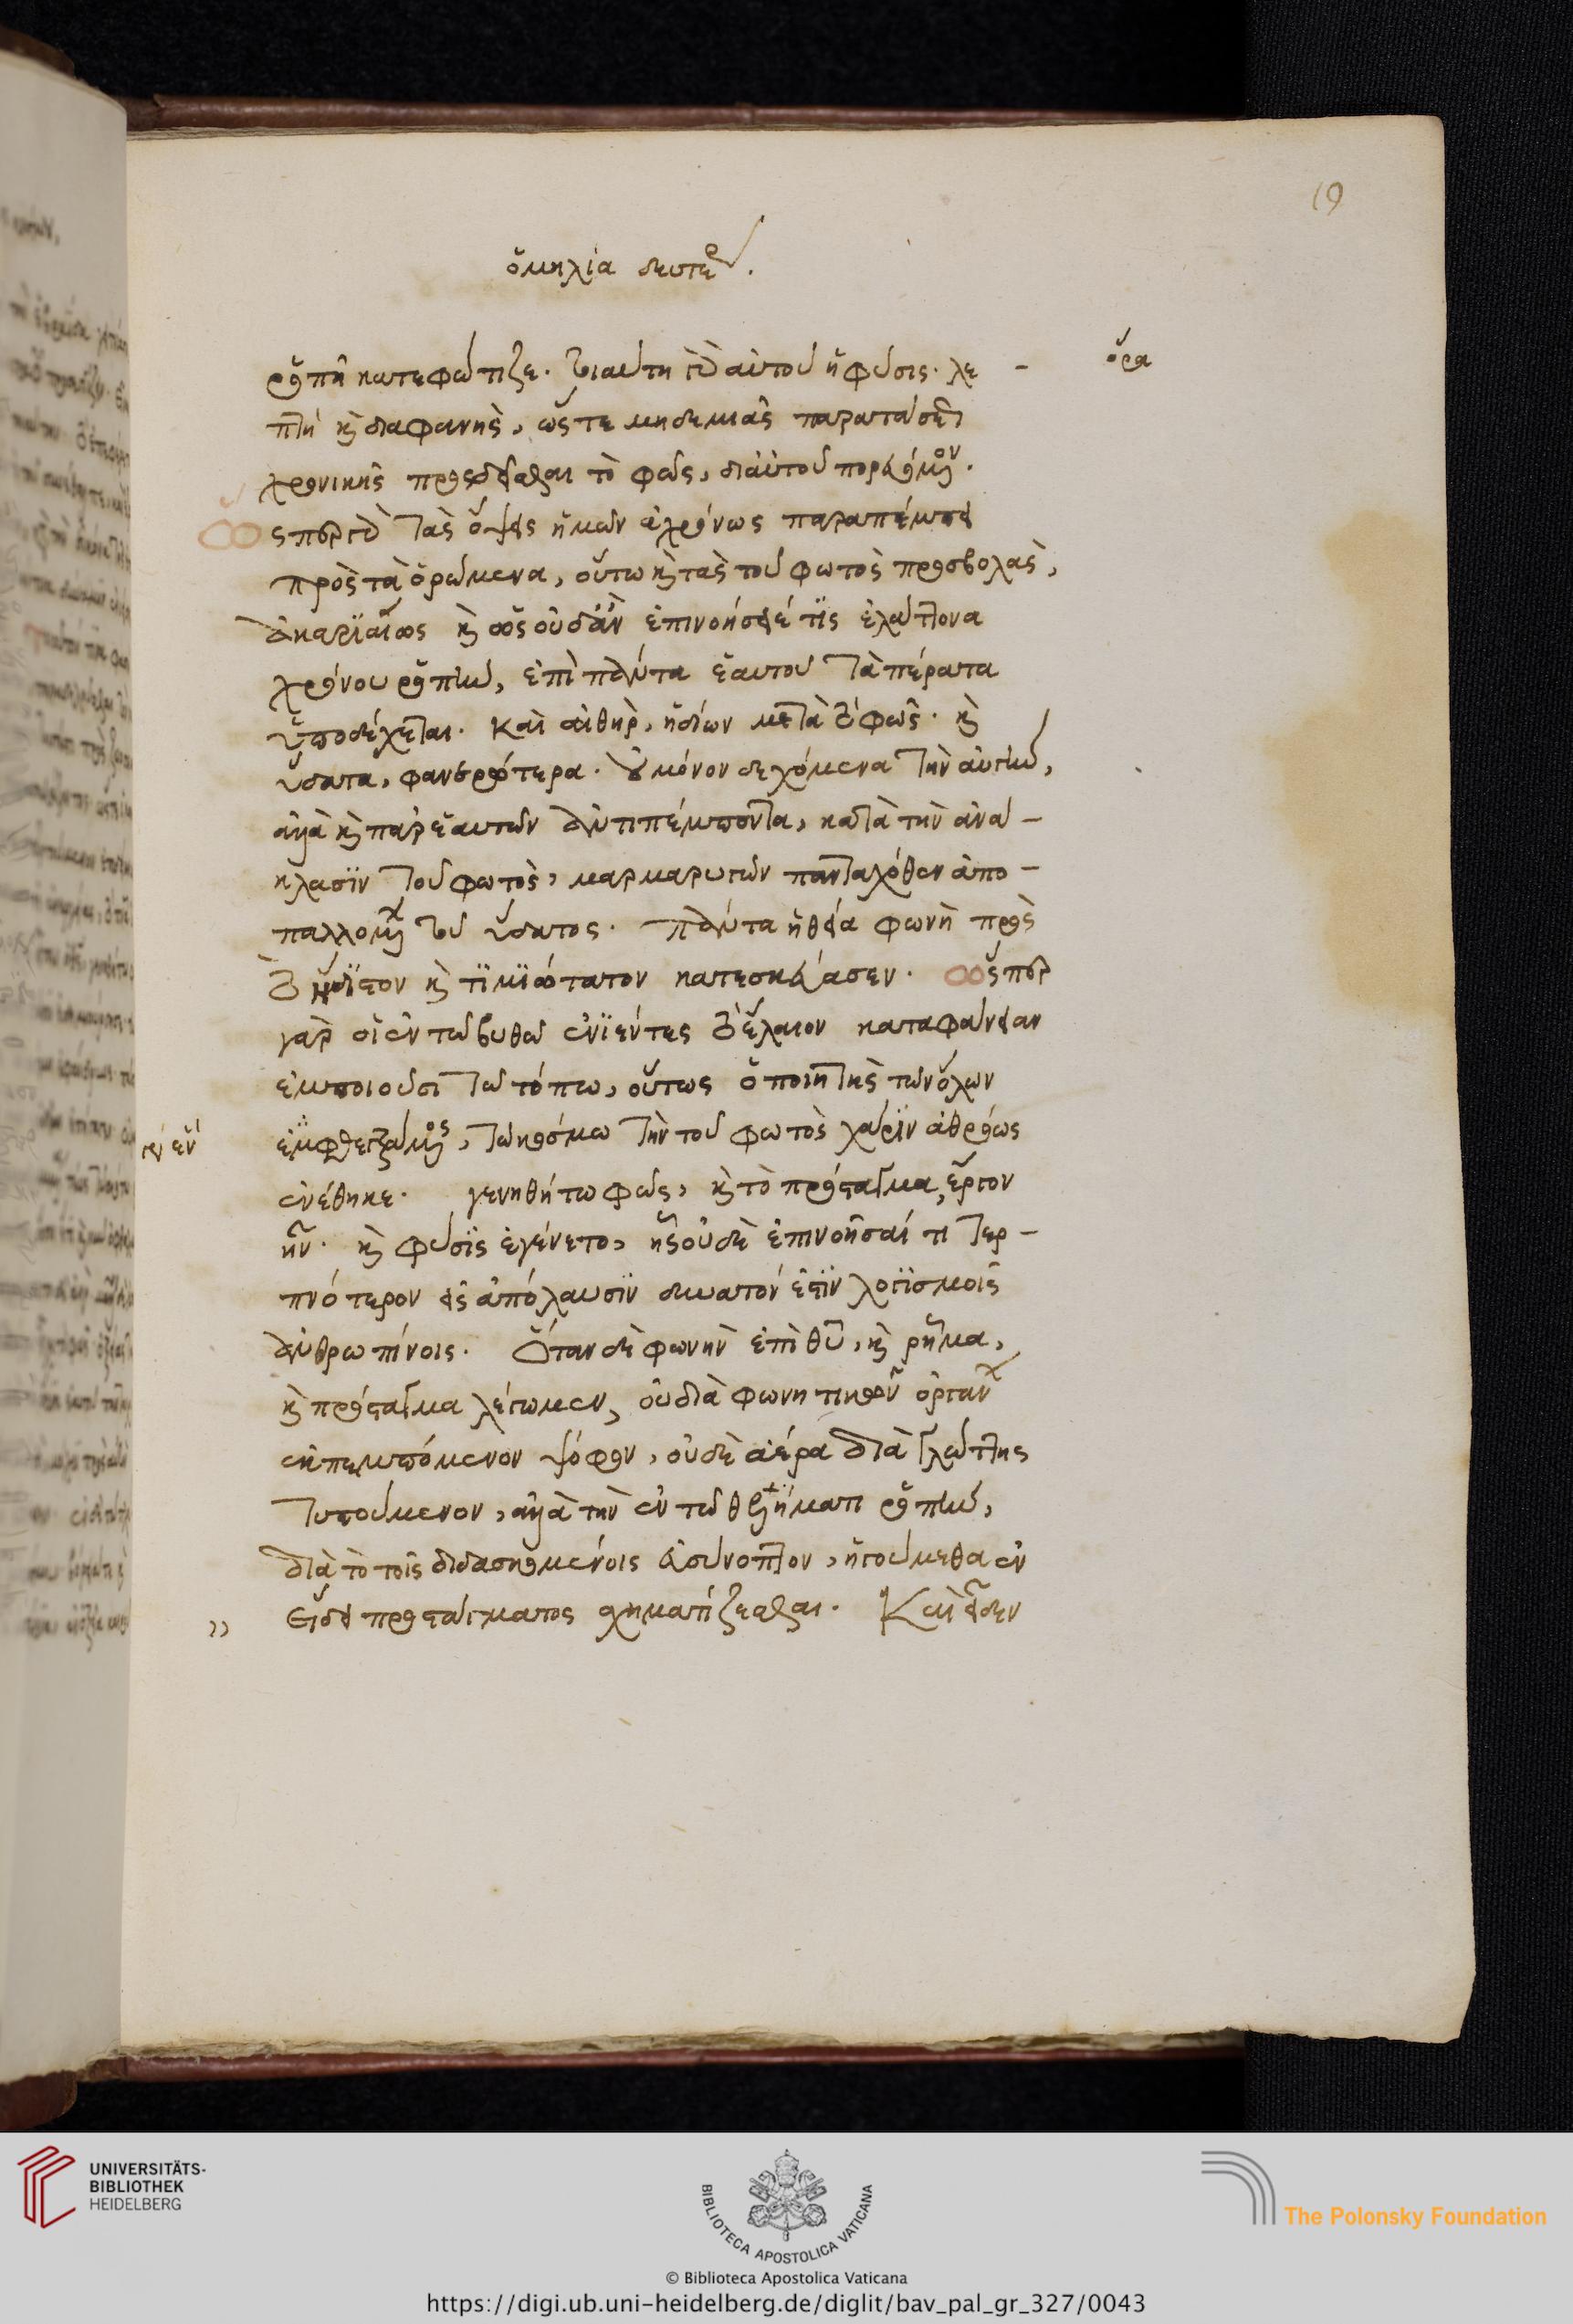 19
ὁμηλία δευτέρα.
ὥρα
ροπῆ κατεφώτιζε. τοιαύτη γὰρ αὐτοῦ ἡ φύσις. λε-
πτὴ καὶ διαφανὴς, ὥστε μηδεμιᾶς παρατάσεως
χρονικῆς προσδεῖσθαι τὸ φῶς, δι αὐτοῦ πορευόμενον.
Ὥσπερ γὰρ τὰς ὄψεις ἡμῶν ἀχρόνως παραπέμπει
πρὸς τὰ ὁρώμενα, οὕτω καὶ τὰς τοῦ φωτὸς προσβολὰς,
ἀκαριαίως καὶ ὡς οὐδ ἂν ἐπινοήσειέ τις ἐλάττονα
χρόνου ροπὴν, ἐπὶ πάντα ἑαυτοῦ τὰ πέρατα
ὑποδέχεται. Καὶ αἰθὴρ, ἡδίων μετὰ τὸ φῶς. καὶ
ὕδατα, φανερώτερα. οὐ μόνον δεχόμενα τὴν αὐγὴν,
ἀλλὰ καὶ παρ ἑαυτῶν ἀντιπέμποντα, κατὰ τὴν ἀνά-
κλασιν τοῦ φωτὸς, μαρμαρυγῶν πανταχόθεν ἀπο-
παλλομένων τοῦ ὕδατος. πάντα ἡ θεία φωνὴ πρὸς
τὸ ἥδιστον καὶ τιμιώτατον κατεσκεύασεν. Ὥσπερ
γὰρ οἱ ἐν τῶ βυθῶ ἐνιέντες τὸ ἔλαιον καταφάνειαν
ἐμποιοῦσι τῶ τόπω, οὕτως ὁ ποιητὴς τῶν ὅλων
ἐμφθεγξάμενος, τῶ κόσμω τὴν τοῦ φωτὸς χάριν ἀθρόως
ἐνέθηκε. γενηθήτω φῶς, καὶ τὸ πρόσταγμα, ἔργον
ἦν. καὶ φύσις ἐγένετο, ἧς οὐδὲ ἐπινοῆσαί τι τερ-
πνότερον εἰς ἀπόλαυσιν δυνατόν ἐστιν λογισμοῖς
ἀνθρωπίνοις. Ὅταν δὲ φωνὴν ἐπὶ θεοῦ, καὶ ρῆμα,
καὶ πρόσταγμα λέγωμεν, οὐ διὰ φωνητικῶν ὀργάνων
ἐκπεμπόμενον ψόφον, οὐδὲ ἀέρα διὰ γλώττης
τυπούμενον, ἀλλὰ τὴν ἐν τῶ θελήματι ροπὴν,
διὰ τὸ τοῖς διδασκομένοις εὐσύνοπτον, ἡγούμεθα ἐν
εἴδει προστάγματος σχηματίζεσθαι. Καὶ εἶδεν
UNIVERSITÄTS-
BIBLIOTHEK
HEIDELBERG
BIBLIOTECA APOSTOLICA VATICANA
The Polonsky Foundation
© Biblioteca Apostolica Vaticana
https://digi.ub.uni-heidelberg.de/diglit/bav_pal_gr_327/0043